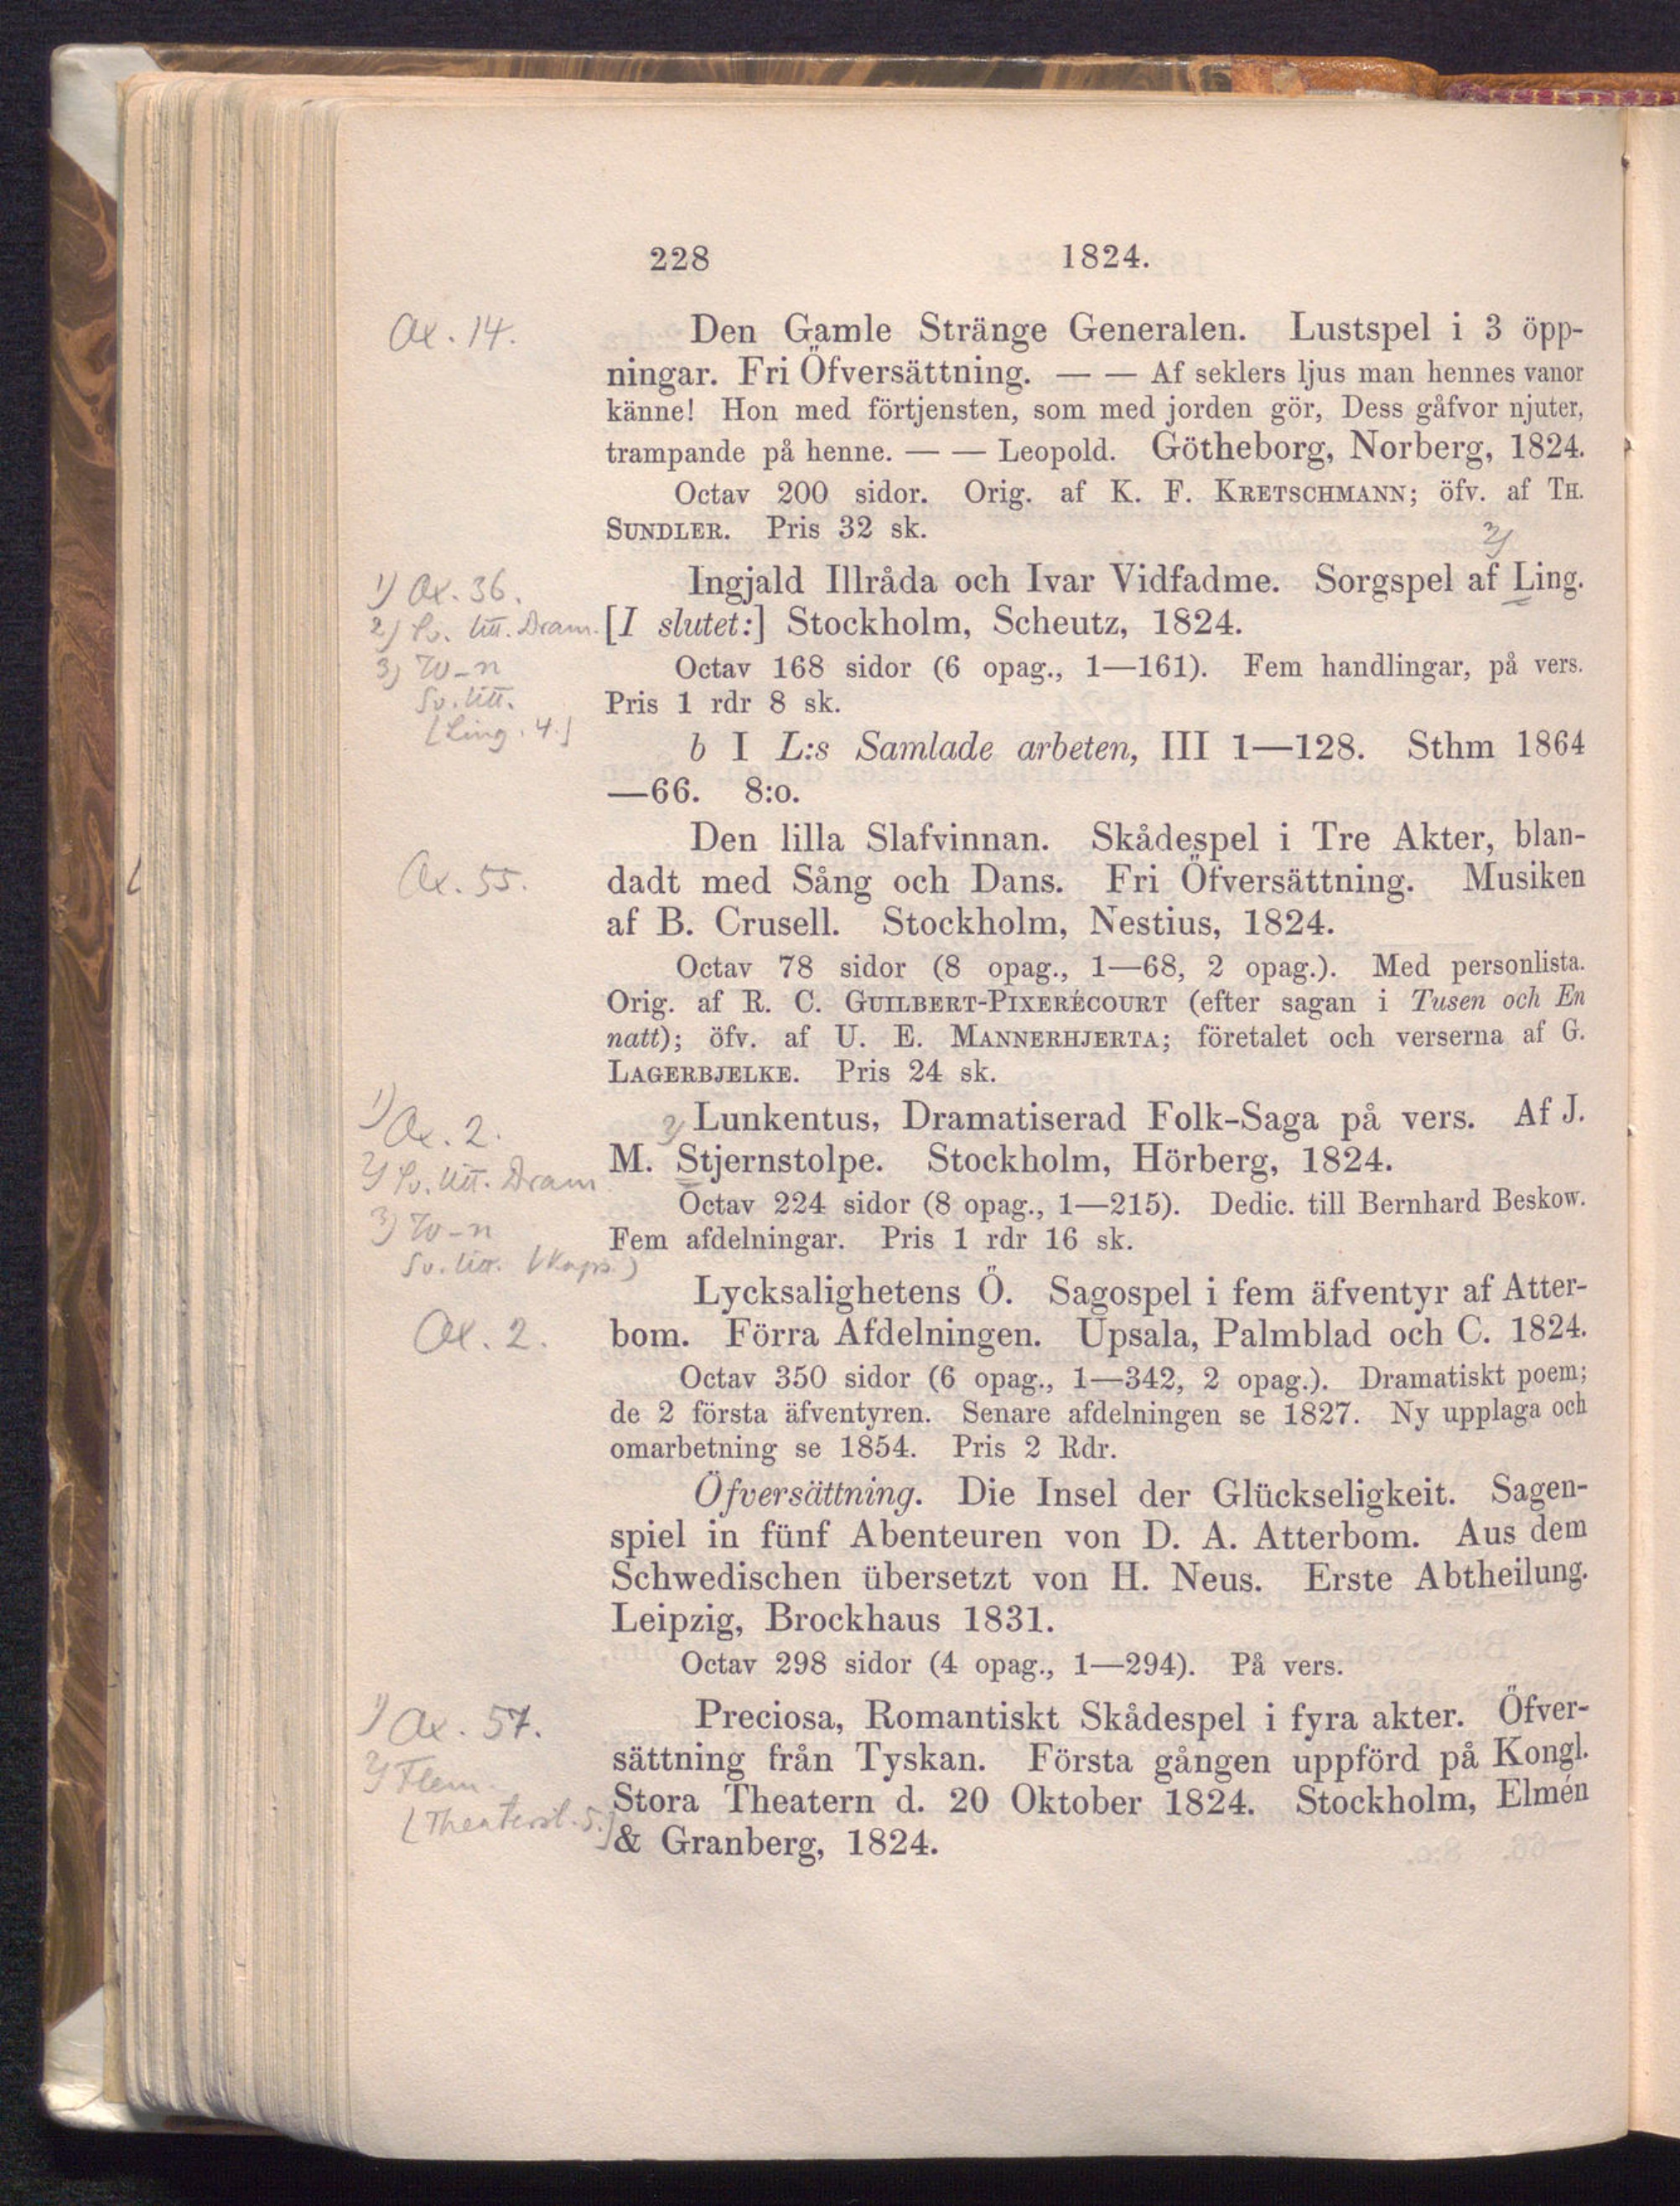 228 1824.
Ax. 14.
Den Gamle Stränge Generalen. Lustspel i 3 öpp-
ningar. Fri Öfversättning. — — Af seklers ljus man hennes vanor
känne! Hon med förtjensten, som med jorden gör, Dess gåfvor njuter,
trampande på henne. — — Leopold. Götheborg, Norberg, 1824.
Octav 200 sidor. Orig. af K. F. KRETSCHMANN; öfv. af TH.
SUNDLER. Pris 32 sk.
2)
Ingjald Illråda och Ivar Vidfadme. Sorgspel af Ling.
[I slutet:] Stockholm, Scheutz, 1824.
Octav 168 sidor (6 opag., 1—161). Fem handlingar, på vers.
Pris 1 rdr 8 sk.
1) Ax. 36.
2) Sv. litt. Dram.
3) W-n
Sv. litt.
[Ling. 4.]
b I L:s Samlade arbeten, III 1—128. Sthm 1864
—66. 8:o.
Den lilla Slafvinnan. Skådespel i Tre Akter, blan-
Ax. 55.
dadt med Sång och Dans. Fri Öfversättning. Musiken
af B. Crusell. Stockholm, Nestius, 1824.
Octav 78 sidor (8 opag., 1—68, 2 opag.). Med personlista.
Orig. af R. C. GUILBERT-PIXERÉCOURT (efter sagan i Tusen och En
natt); öfv. af U. E. MANNERHJERTA; företalet och verserna af G.
LAGERBJELKE. Pris 24 sk.
2) Lunkentus, Dramatiserad Folk-Saga på vers. Af J.
M. Stjernstolpe. Stockholm, Hörberg, 1824.
Octav 224 sidor (8 opag., 1—215). Dedic. till Bernhard Beskow.
Fem afdelningar. Pris 1 rdr 16 sk.
1) Ax. 2.
2) Sv. litt. Dram
3) W-n
Sv. litt. (Kaps.)
Lycksalighetens Ö. Sagospel i fem äfventyr af Atter-
Ax. 2.
bom. Förra Afdelningen. Upsala, Palmblad och C. 1824.
Octav 350 sidor (6 opag., 1—342, 2 opag.). Dramatiskt poem;
de 2 första äfventyren. Senare afdelningen se 1827. Ny upplaga och
omarbetning se 1854. Pris 2 Rdr.
Öfversättning. Die Insel der Glückseligkeit. Sagen-
spiel in fünf Abenteuren von D. A. Atterbom. Aus dem
Schwedischen übersetzt von H. Neus. Erste Abtheilung.
Leipzig, Brockhaus 1831.
Octav 298 sidor (4 opag., 1—294). På vers.
1) Ax. 57.
2) Flem.
[Theaterst. 5.]
Preciosa, Romantiskt Skådespel i fyra akter. Öfver-
sättning från Tyskan. Första gången uppförd på Kongl.
Stora Theatern d. 20 Oktober 1824. Stockholm, Elmén
& Granberg, 1824.